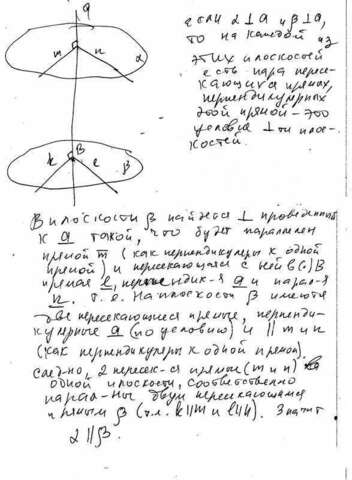 a
если α⊥a и β⊥a,
то на каждой из
m n α
этих плоскостей
есть пара пересе-
кающихся прямых,
перпендикулярных
этой прямой – это
условие ⊥ти плос-
костей.
B
k e β
В плоскости β найдется ⊥ проведенный
к a такой, что будет параллелен
прямой m (как перпендикуляры к одной
прямой) и пересекающаяся с ней в (·) B
прямая l, перпендик-я a и парал-я
n. т.о. На плоскости β имеются
две пересекающиеся прямые, перпенди-
кулярные a (по условию) и || m и n
(как перпендикуляры к одной прямой).
След-но, 2 пересек-ся прямые (m и n)
одной плоскости, соответственно
парал-ны двум пересекающимся
прямым β (т.к. k||m и l||n). Значит
α||β.